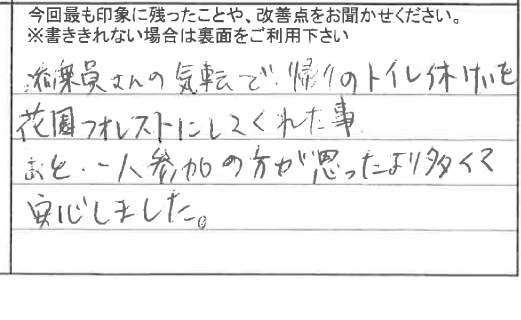 今回最も印象に残ったことや、改善点をお聞かせください。
※書ききれない場合は裏面をご利用下さい
添乗員さんの気転で、帰りのトイレ休けいを
花園フォレストにしてくれた事
あと、一人参加の方が思ったより多くて
安心しました。